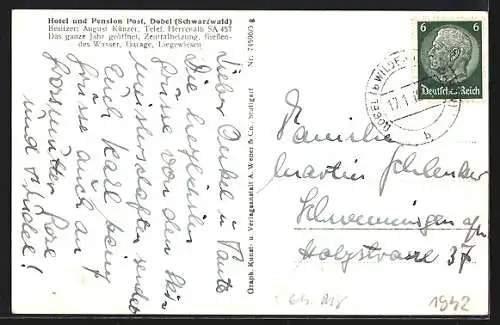 Hotel und Pension Post, Dobel (Schwarzwald)
Besitzer: August Künzer, Telef. Herrenalb SA 457
Das ganze Jahr geöffnet, Zentralheizung, fließen-
des Wasser, Garage, Liegewiesen
Lieber Onkel u. Tante
Die herzlichsten
Grüsse von den
sendet
Euch Karl Heinz
Grüsse auch an
und
Graph. Kunst- u. Verlagsanstalt A. Weber & Co., Stuttgart Nr.
6 6
Deutsches Reich
DOBEL (b WILDB
17.1
b
Familie
Martin Schlenker
Schwenningen a/N
Holzstrasse 37
1942